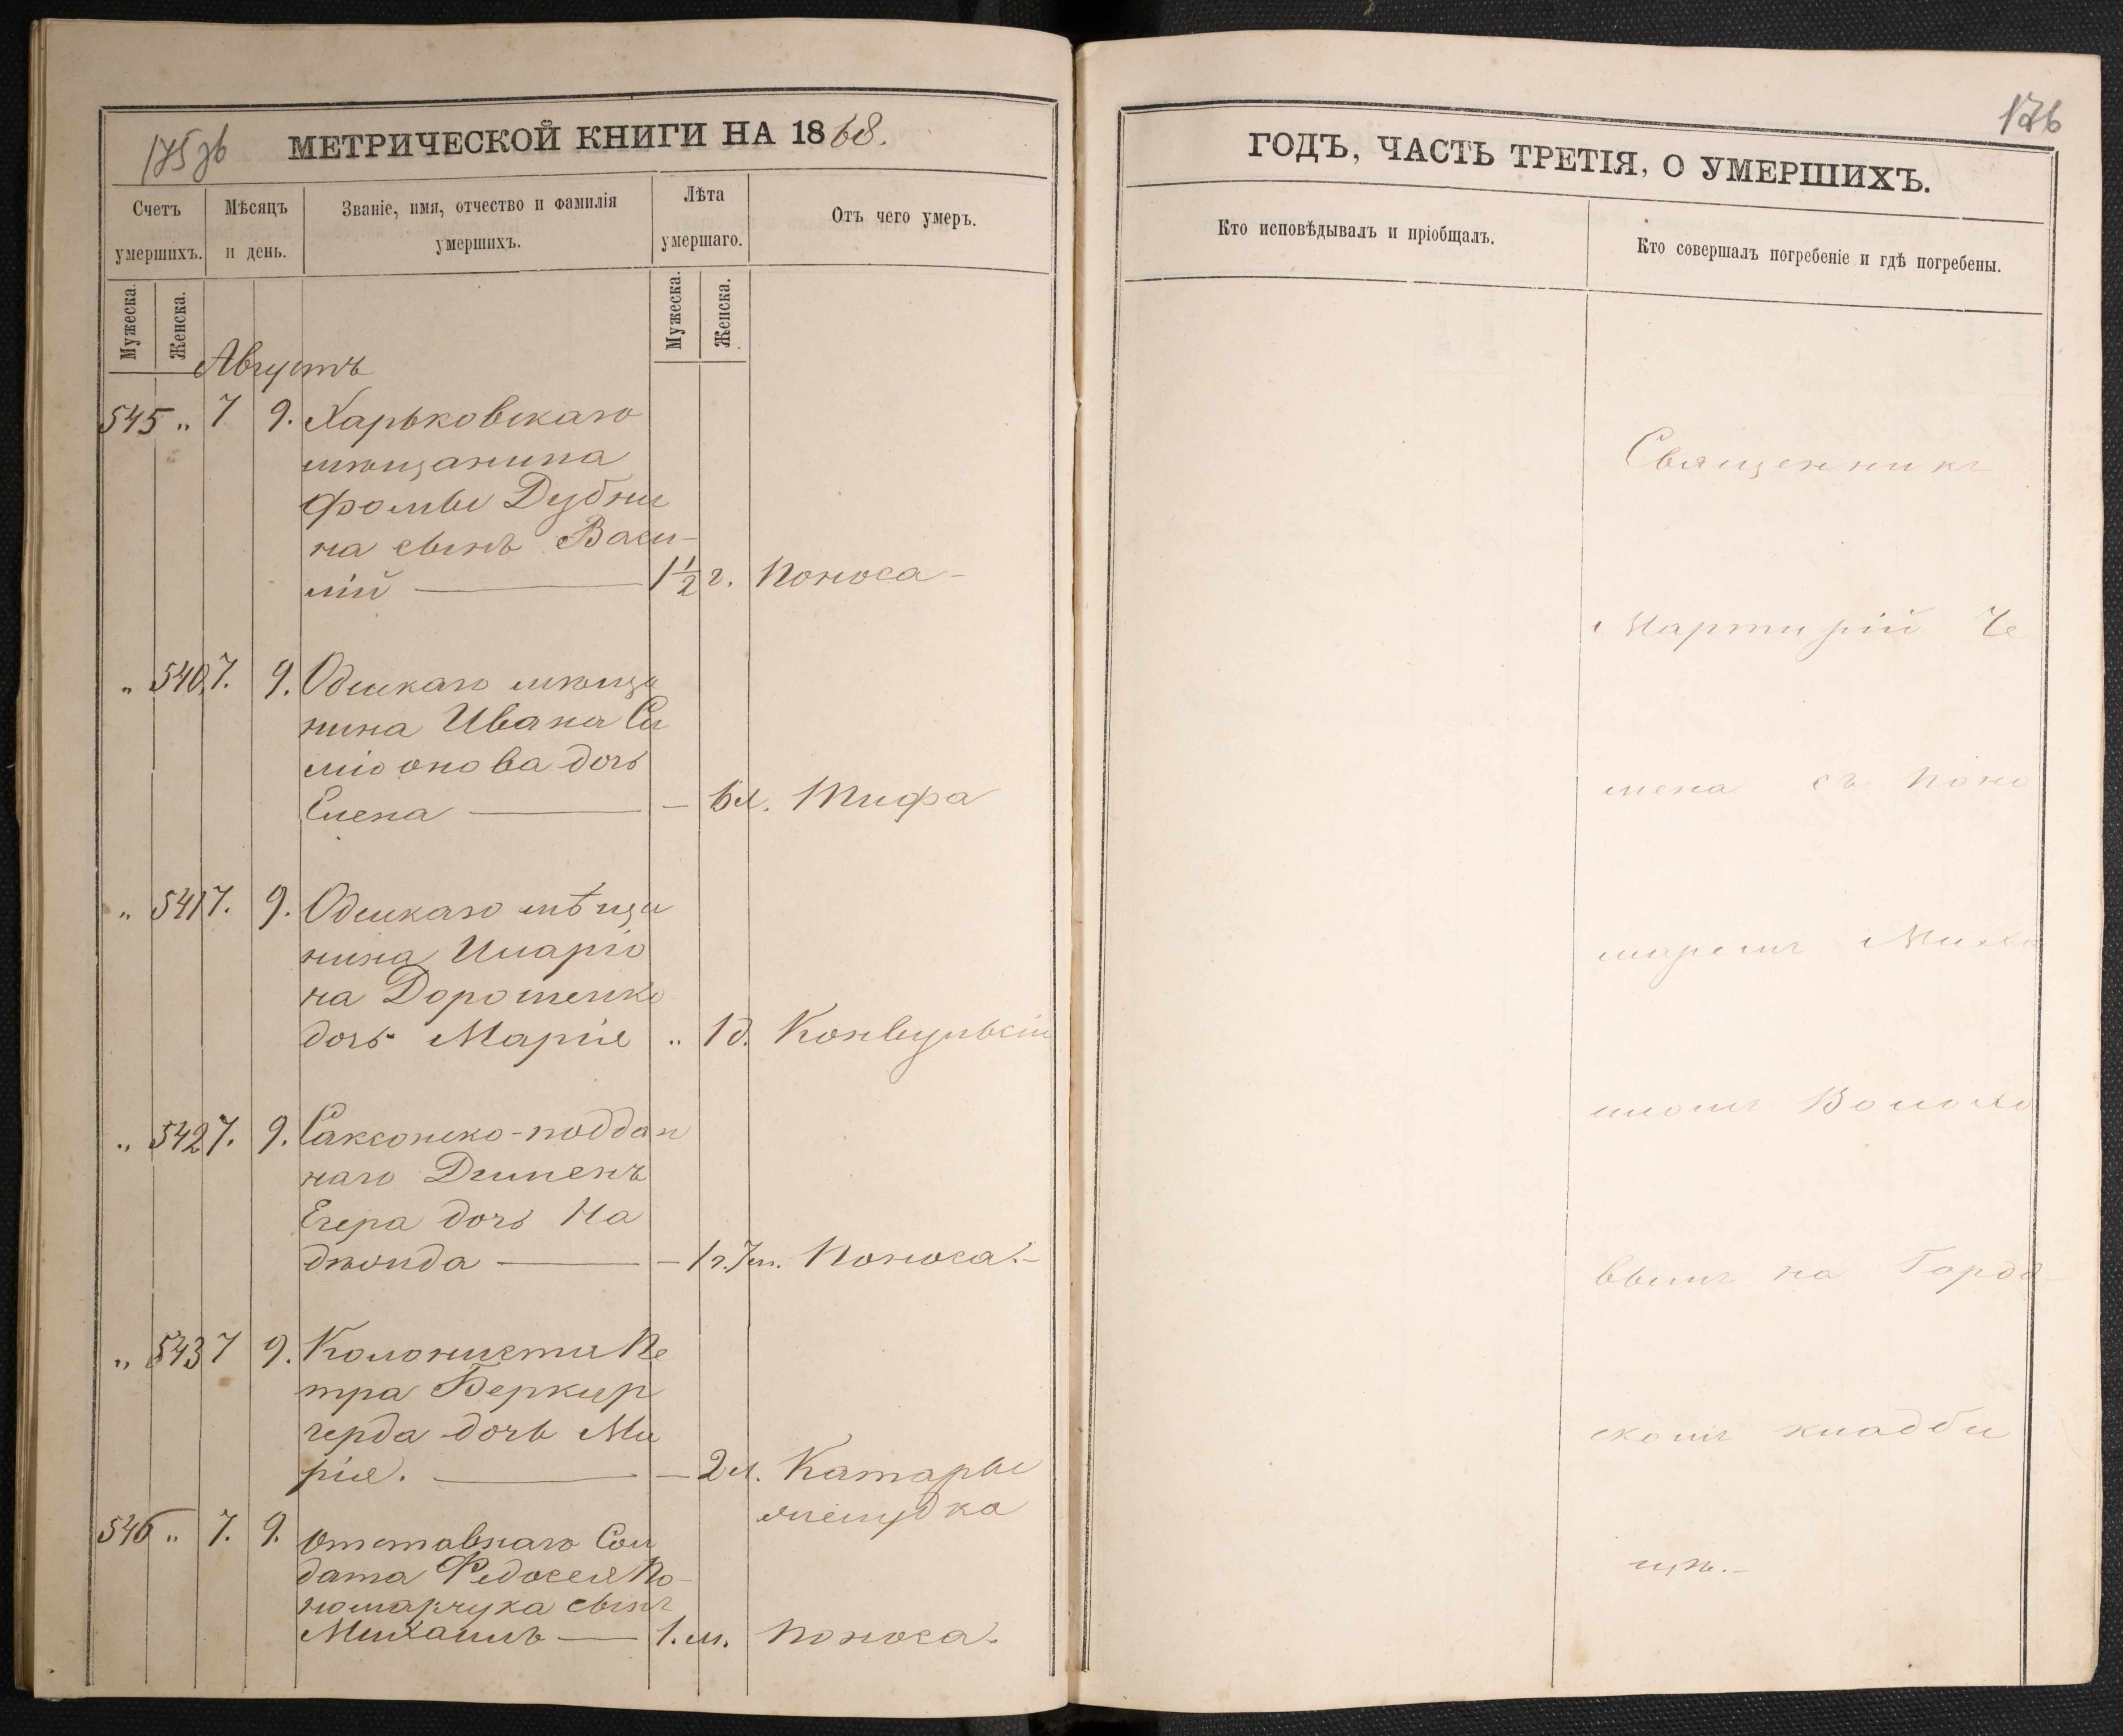 175 зв
МЕТРИЧЕСКОЙ КНИГИ НА 1868.
Счетъ умершихъ.
Мѣсяцъ и день.
Званіе, имя, отчество и фамилія умершихъ.
Лѣта умершаго.
Отъ чего умеръ.
Мужеска.
Женска.
Мужеска.
Женска.
Августъ
545 „ 7 9. Харьковскаго
мѣщанина
Фомы Дубни
на сынъ Васи-
лій 1½ г. Поноса
„ 540 7. 9. Одескаго мѣща
нина Ивана Си
міонова дочь
Елена — 6 л. Тифа
„ 541 7. 9. Одескаго мѣща
нина Иларіо
на Дорошенко
дочь Марія „ 1 д. Конвульсіи
„ 542 7. 9. Саксонско-поддан
наго
Егера дочь На
дѣжда — 1 г. 7 м. Поноса.
„ 543 7 9. Колониста Пе
тра Беркир
герда дочь Ма
рія. — 2 л. Катары
желудка
546 „ 7. 9. Отставнаго Сол
дата Федосея По-
номарчука сынъ
Михаилъ 1. м. Поноса.
176
ГОДЪ, ЧАСТЬ ТРЕТІЯ, О УМЕРШИХЪ.
Кто исповѣдывалъ и пріобщалъ.
Кто совершалъ погребеніе и гдѣ погребены.
Священникъ
Мартирій Че
мена съ поно
маремъ Миха
иломъ Волохо
вымъ на Город
скомъ кладби
щѣ.